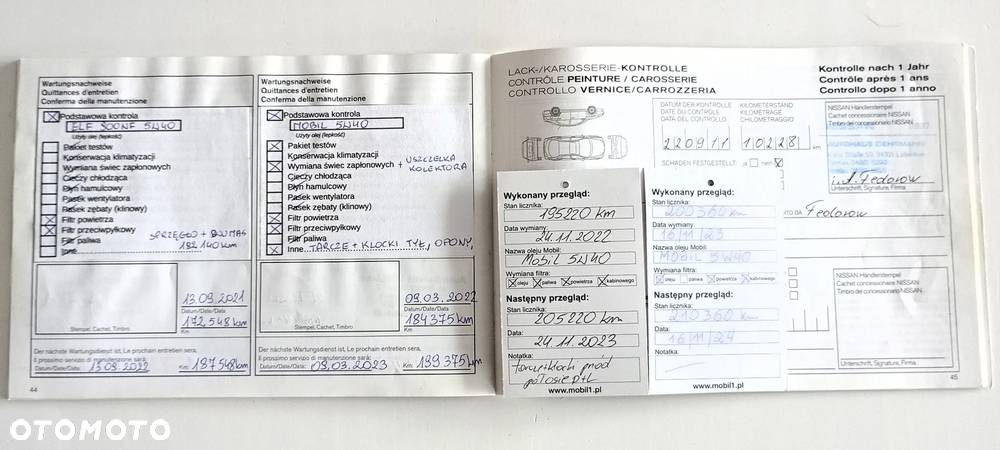 Wartungsnachweise
Quittances d'entretien
Conferma della manutenzione
Podstawowa kontrola
ELF 900NF 5W40
Użyty olej (lepkość)
Pakiet testów
Konserwacja klimatyzacji
Wymiana świec zapłonowych
Cieczy chłodząca
Płyn hamulcowy
Pasek wentylatora
Rasek zębaty (klinowy)
Filtr powietrza
Filtr przeciwpyłkowy
Filtr paliwa
Inne
SPRZĘGŁO + DWUMAS
182 140 km
13.09.2021
Datum/Date/Data
172 548 km
Km
Stempel, Cachet, Timbro
Der nächste Wartungsdienst ist, Le prochain entretien sera,
Il prossimo servizio di manutenzione sarà:
Datum/Date/Data: 13.09.2022 Km: 187548 km
44
Wartungsnachweise
Quittances d'entretien
Conferma della manutenzione
Podstawowa kontrola
MOBIL 5W40
Użyty olej (lepkość)
Pakiet testów
Konserwacja klimatyzacji
Wymiana świec zapłonowych + USZCZELKA
KOLEKTORA
Cieczy chłodząca
Płyn hamulcowy
Pasek wentylatora
Rasek zębaty (klinowy)
Filtr powietrza
Filtr przeciwpyłkowy
Filtr paliwa
Inne TARCZE + KLOCKI TYŁ, OPONY,
09.03.2022
Datum/Date/Data
184 375 km
Km
Stempel, Cachet, Timbro
Der nächste Wartungsdienst ist, Le prochain entretien sera,
Il prossimo servizio di manutenzione sarà:
Datum/Date/Data: 09.03.2023 Km: 199 375 km
LACK-/KAROSSERIE-KONTROLLE
CONTRÔLE PEINTURE / CAROSSERIE
CONTROLLO VERNICE/CARROZZERIA
Kontrolle nach 1 Jahr
Contrôle après 1 ans
Controllo dopo 1 anno
DATUM DER KONTROLLE
DATE DU CONTRÔLE
DATA DEL CONTROLLO
220911
KILOMETERSTAND
KILOMÉTRAGE
CHILOMETRAGGIO
10228 km
SCHADEN FESTGESTELLT: ja nein
NISSAN Händlerstempel
Cachet concessionnaire NISSAN
Timbro del concessionario NISSAN
Unterschrift, Signature, Firma
Fedorow
NISSAN Händlerstempel
Cachet concessionnaire NISSAN
Timbro del concessionario NISSAN
Unterschrift, Signature, Firma
45
Wykonany przegląd:
Stan licznika:
195220 km
Data wymiany:
24.11.2022
Nazwa oleju Mobil:
Mobil 5W40
Wymiana filtra:
oleju paliwa powietrza kabinowego
Następny przegląd:
Stan licznika:
205220 km
Data:
24.11.2023
Notatka:
www.mobil1.pl
Wykonany przegląd:
Stan licznika:
200360 km
Data wymiany:
16/11/23
Nazwa oleju Mobil:
MOBIL 5W40
Wymiana filtra:
oleju paliwa powietrza kabinowego
Następny przegląd:
Stan licznika:
210360 km
Data:
16/11/24
Notatka:
www.mobil1.pl
OTOMOTO
OTOMOTO